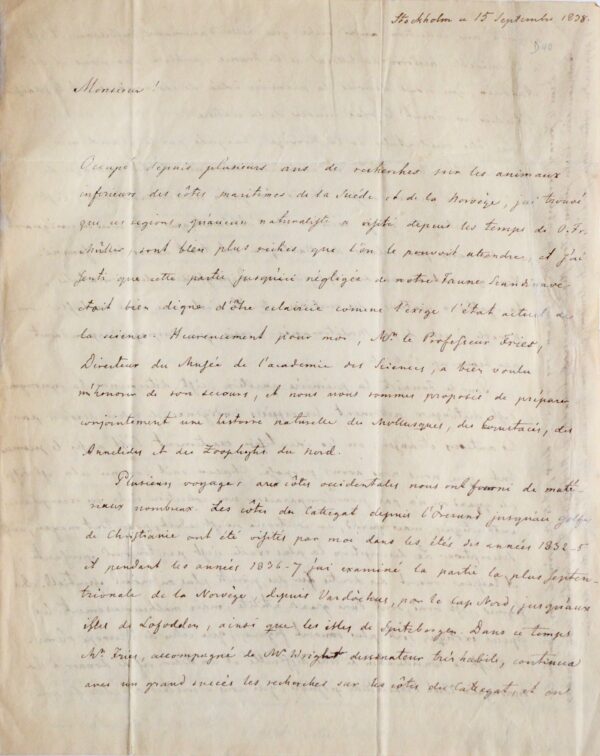 Stockholm ce 15 Septembre 1838.
Monsieur!
Occupé depuis plusieurs ans de recherches sur les animaux
inferieurs des côtes maritimes de la Suède et de la Norvège, j'ai trouvé
que ces regions, qu'aucun naturaliste a visité depuis les temps de O. Fr.
Müller, sont bien plus riches que l'on le pouvoit attendre, et j'ai
senti que cette partie jusqu'ici négligée de notre Faune Scandinave
étoit bien digne d'être eclaircie comme l'exige l'état actuel de
la science. Heureusement pour moi, Mr. le Professeur Fries,
Directeur du Musée de l'académie des Sciences, a bien voulu
m'honorer de son secours, et nous nous sommes proposés de préparer
conjointement une histoire naturelle des Mollusques, des Crustacés, des
Annelides et des Zoophytes du Nord.
Plusieurs voyages aux côtes occidentales nous ont fourni de maté-
riaux nombreux. Les côtes du Cattegat depuis l'Öresund jusqu'au golfe
de Christiania ont été visités par moi dans les étés des années 1832-5
et pendant les années 1836-7 j'ai examiné la partie la plus septen-
trionale de la Norvège, depuis Vardöehus, par le Cap Nord, jusqu'aux
isles de Lofodden, ainsi que les isles de Spitzbergen. Dans ce temps
Mr. Fries, accompagné de Mr. Wright dessinateur très habile, continua
avec un grand succès les recherches sur les côtes du Cattegat, et on